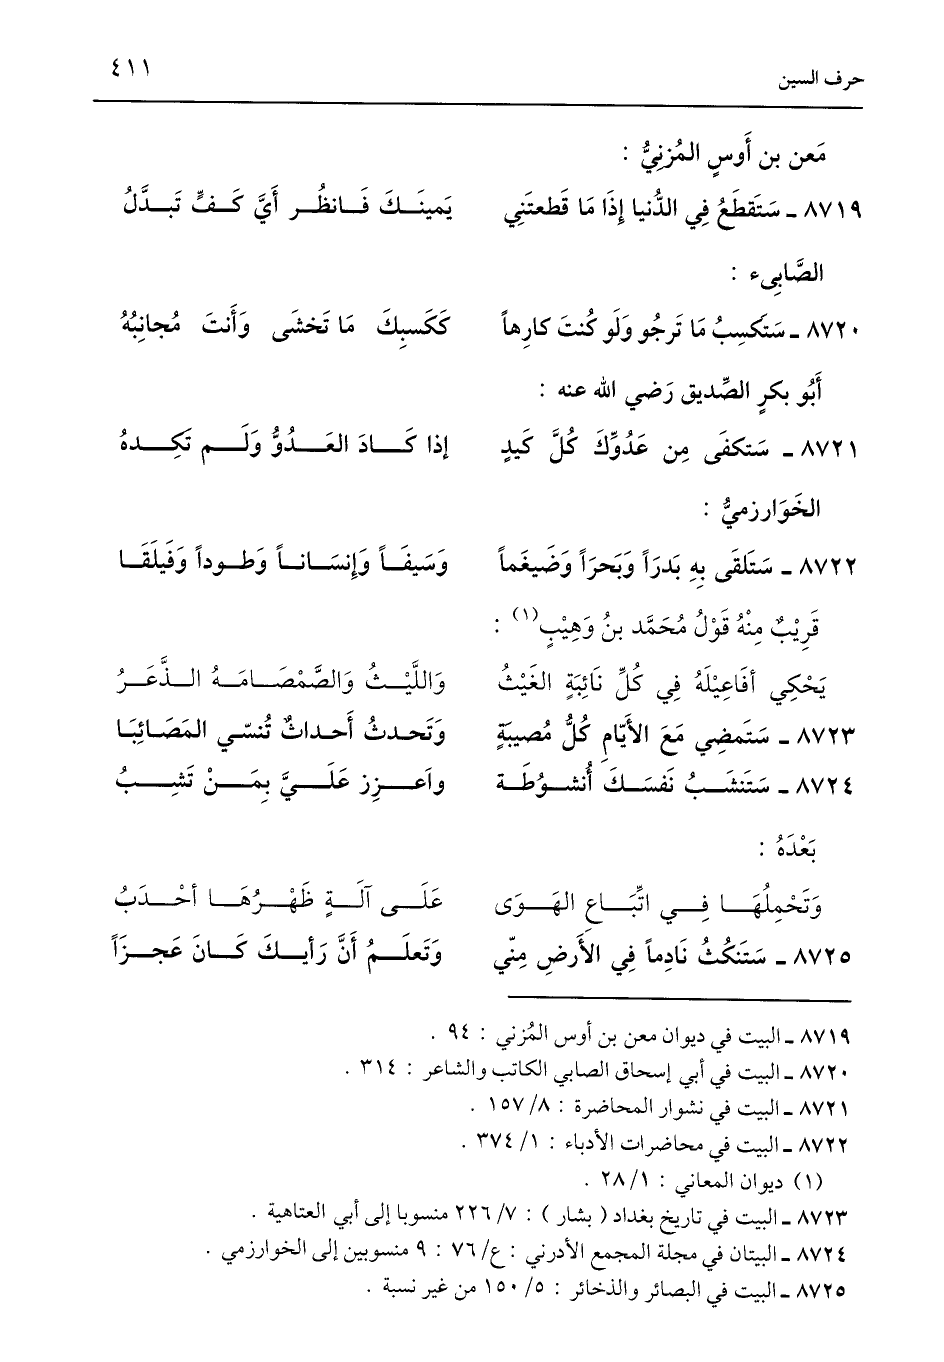 حرف السين ٤١١
مَعن بن أَوسٍ المُزنِيُّ :
٨٧١٩ ـ سَتَقطَعُ فِي الدُّنيا إِذَا مَا قَطعتَنِي يَمينَـكَ فَـانظُـر أَيَّ كَـفٍّ تَبـدَّلُ
الصَّابِىء :
٨٧٢٠ ـ سَتَكسِبُ مَا تَرجُو وَلَو كُنتَ كارِهاً كَكَسبِكَ مَا تَخشَى وَأَنتَ مُجانِبُهُ
أَبُو بكرٍ الصِّديق رَضي الله عنه :
٨٧٢١ ـ سَتكفَى مِن عَدُوِّكَ كُلَّ كَيدٍ إذا كَـادَ العَـدُوُّ وَلَـم تَكِـدهُ
الخَوَارزميُّ :
٨٧٢٢ ـ سَتَلقَى بِهِ بَدرَاً وَبَحرَاً وَضَيغَماً وَسَيفَـاً وَإِنسَـانـاً وَطـوداً وَفَيلَقَـا
قَرِيْبٌ مِنْهُ قَوْلُ مُحَمَّد بنُ وَهِيْبٍ(١) :
يَحْكِي أفَاعِيْلَهُ فِي كُلِّ نَائِبَةٍ الغَيْثُ وَاللَّيْـثُ وَالصَّمْصَـامَـةُ الـذَّعَـرُ
٨٧٢٣ ـ سَتَمضِي مَعَ الأَيَّامِ كُلُّ مُصيبَةٍ وَتَحـدثُ أَحـداثٌ تُنسّـي المَصَـائِبَـا
٨٧٢٤ ـ سَتَنشَـبُ نَفسَـكَ أُنشـوُطَـة واَعـزِز عَلَـيَّ بِمَـنْ تَشِـبُ
بَعْدَهُ :
وَتَحْمِلُهَـا فِـي اتِّبَـاعِ الهَـوَى عَلَـى آلَـةٍ ظَهْـرُهَـا أحْـدَبُ
٨٧٢٥ ـ سَتَنكُثُ نَادِماً فِي الأَرضِ مِنّي وَتَعلَـمُ أَنَّ رَأيـكَ كَـانَ عَجـزَاً
٨٧١٩ ـ البيت في ديوان معن بن أوس المُزني : ٩٤ .
٨٧٢٠ ـ البيت في أبي إسحاق الصابي الكاتب والشاعر : ٣١٤ .
٨٧٢١ ـ البيت في نشوار المحاضرة : ٨/ ١٥٧ .
٨٧٢٢ ـ البيت في محاضرات الأدباء : ١/ ٣٧٤ .
(١) ديوان المعاني : ١/ ٢٨ .
٨٧٢٣ ـ البيت في تاريخ بغداد ( بشار ) : ٧/ ٢٢٦ منسوبا إلى أبي العتاهية .
٨٧٢٤ ـ البيتان في مجلة المجمع الأدرني : ع/ ٧٦ : ٩ منسوبين إلى الخوارزمي .
٨٧٢٥ ـ البيت في البصائر والذخائر : ٥/ ١٥٠ من غير نسبة .